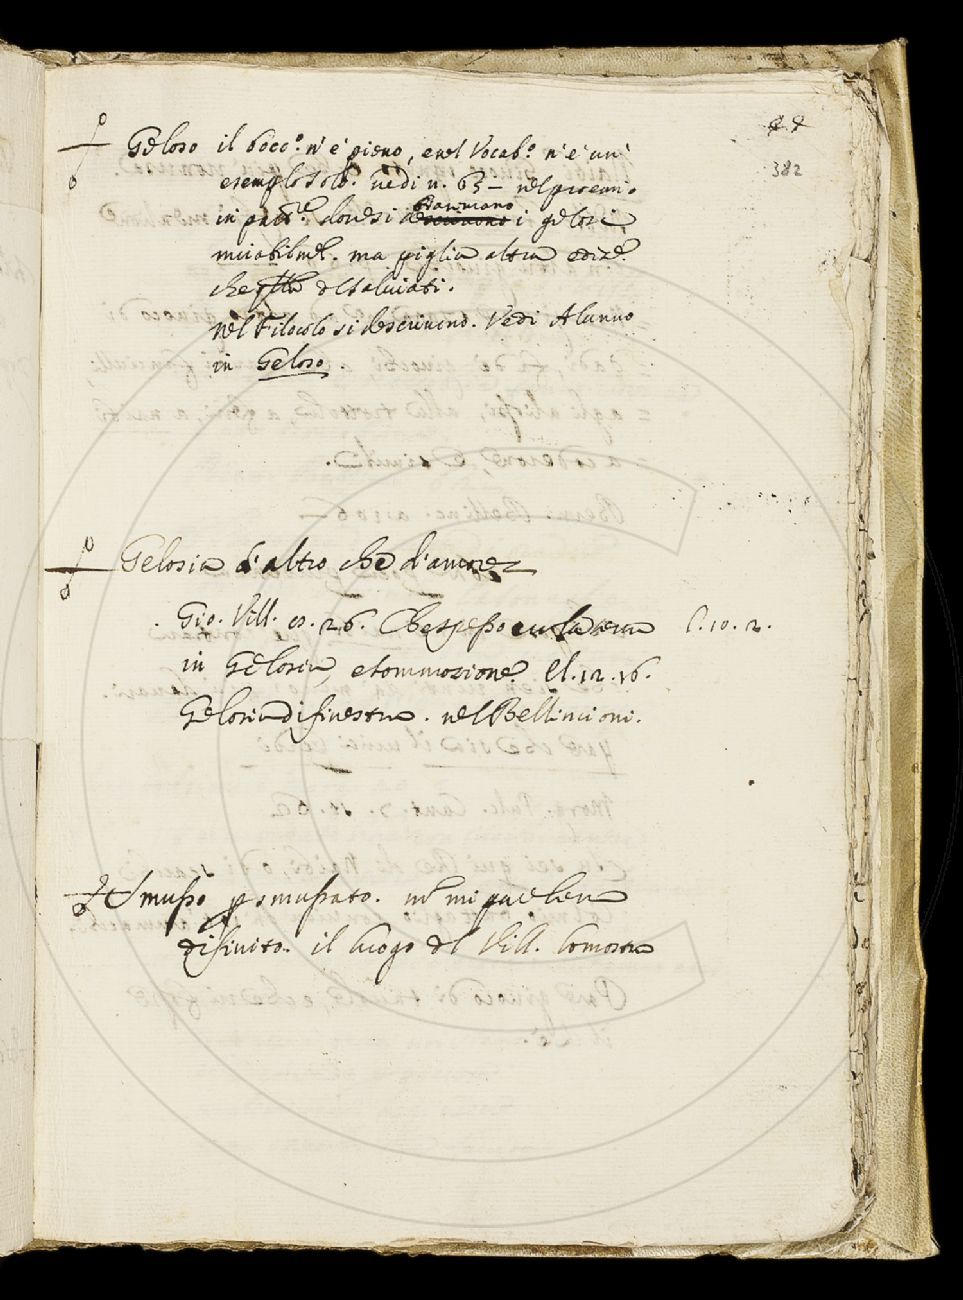 382
Geloso il Bocc.º n'è pieno, e nel Vocab.º n'è un'
esemplo solo. vedi n. 63 – nel proemio
in part.re dove si dannano i gelosi
mirabilmen. ma piglia altra ediz.e
che del Salviati.
nel Filocolo si descrivono. Vedi Alunno
in Geloso
Gelosia d'altro che d'amore
Gio. Vill. 10. 26. Che spesso era l. 10. 2.
in Gelosia, e commozione. e l. 12. 16.
Gelosia di finestra. nel Bellincioni.
musso smussato. mi par ben
difinito. il luogo del Vill. lo mostra